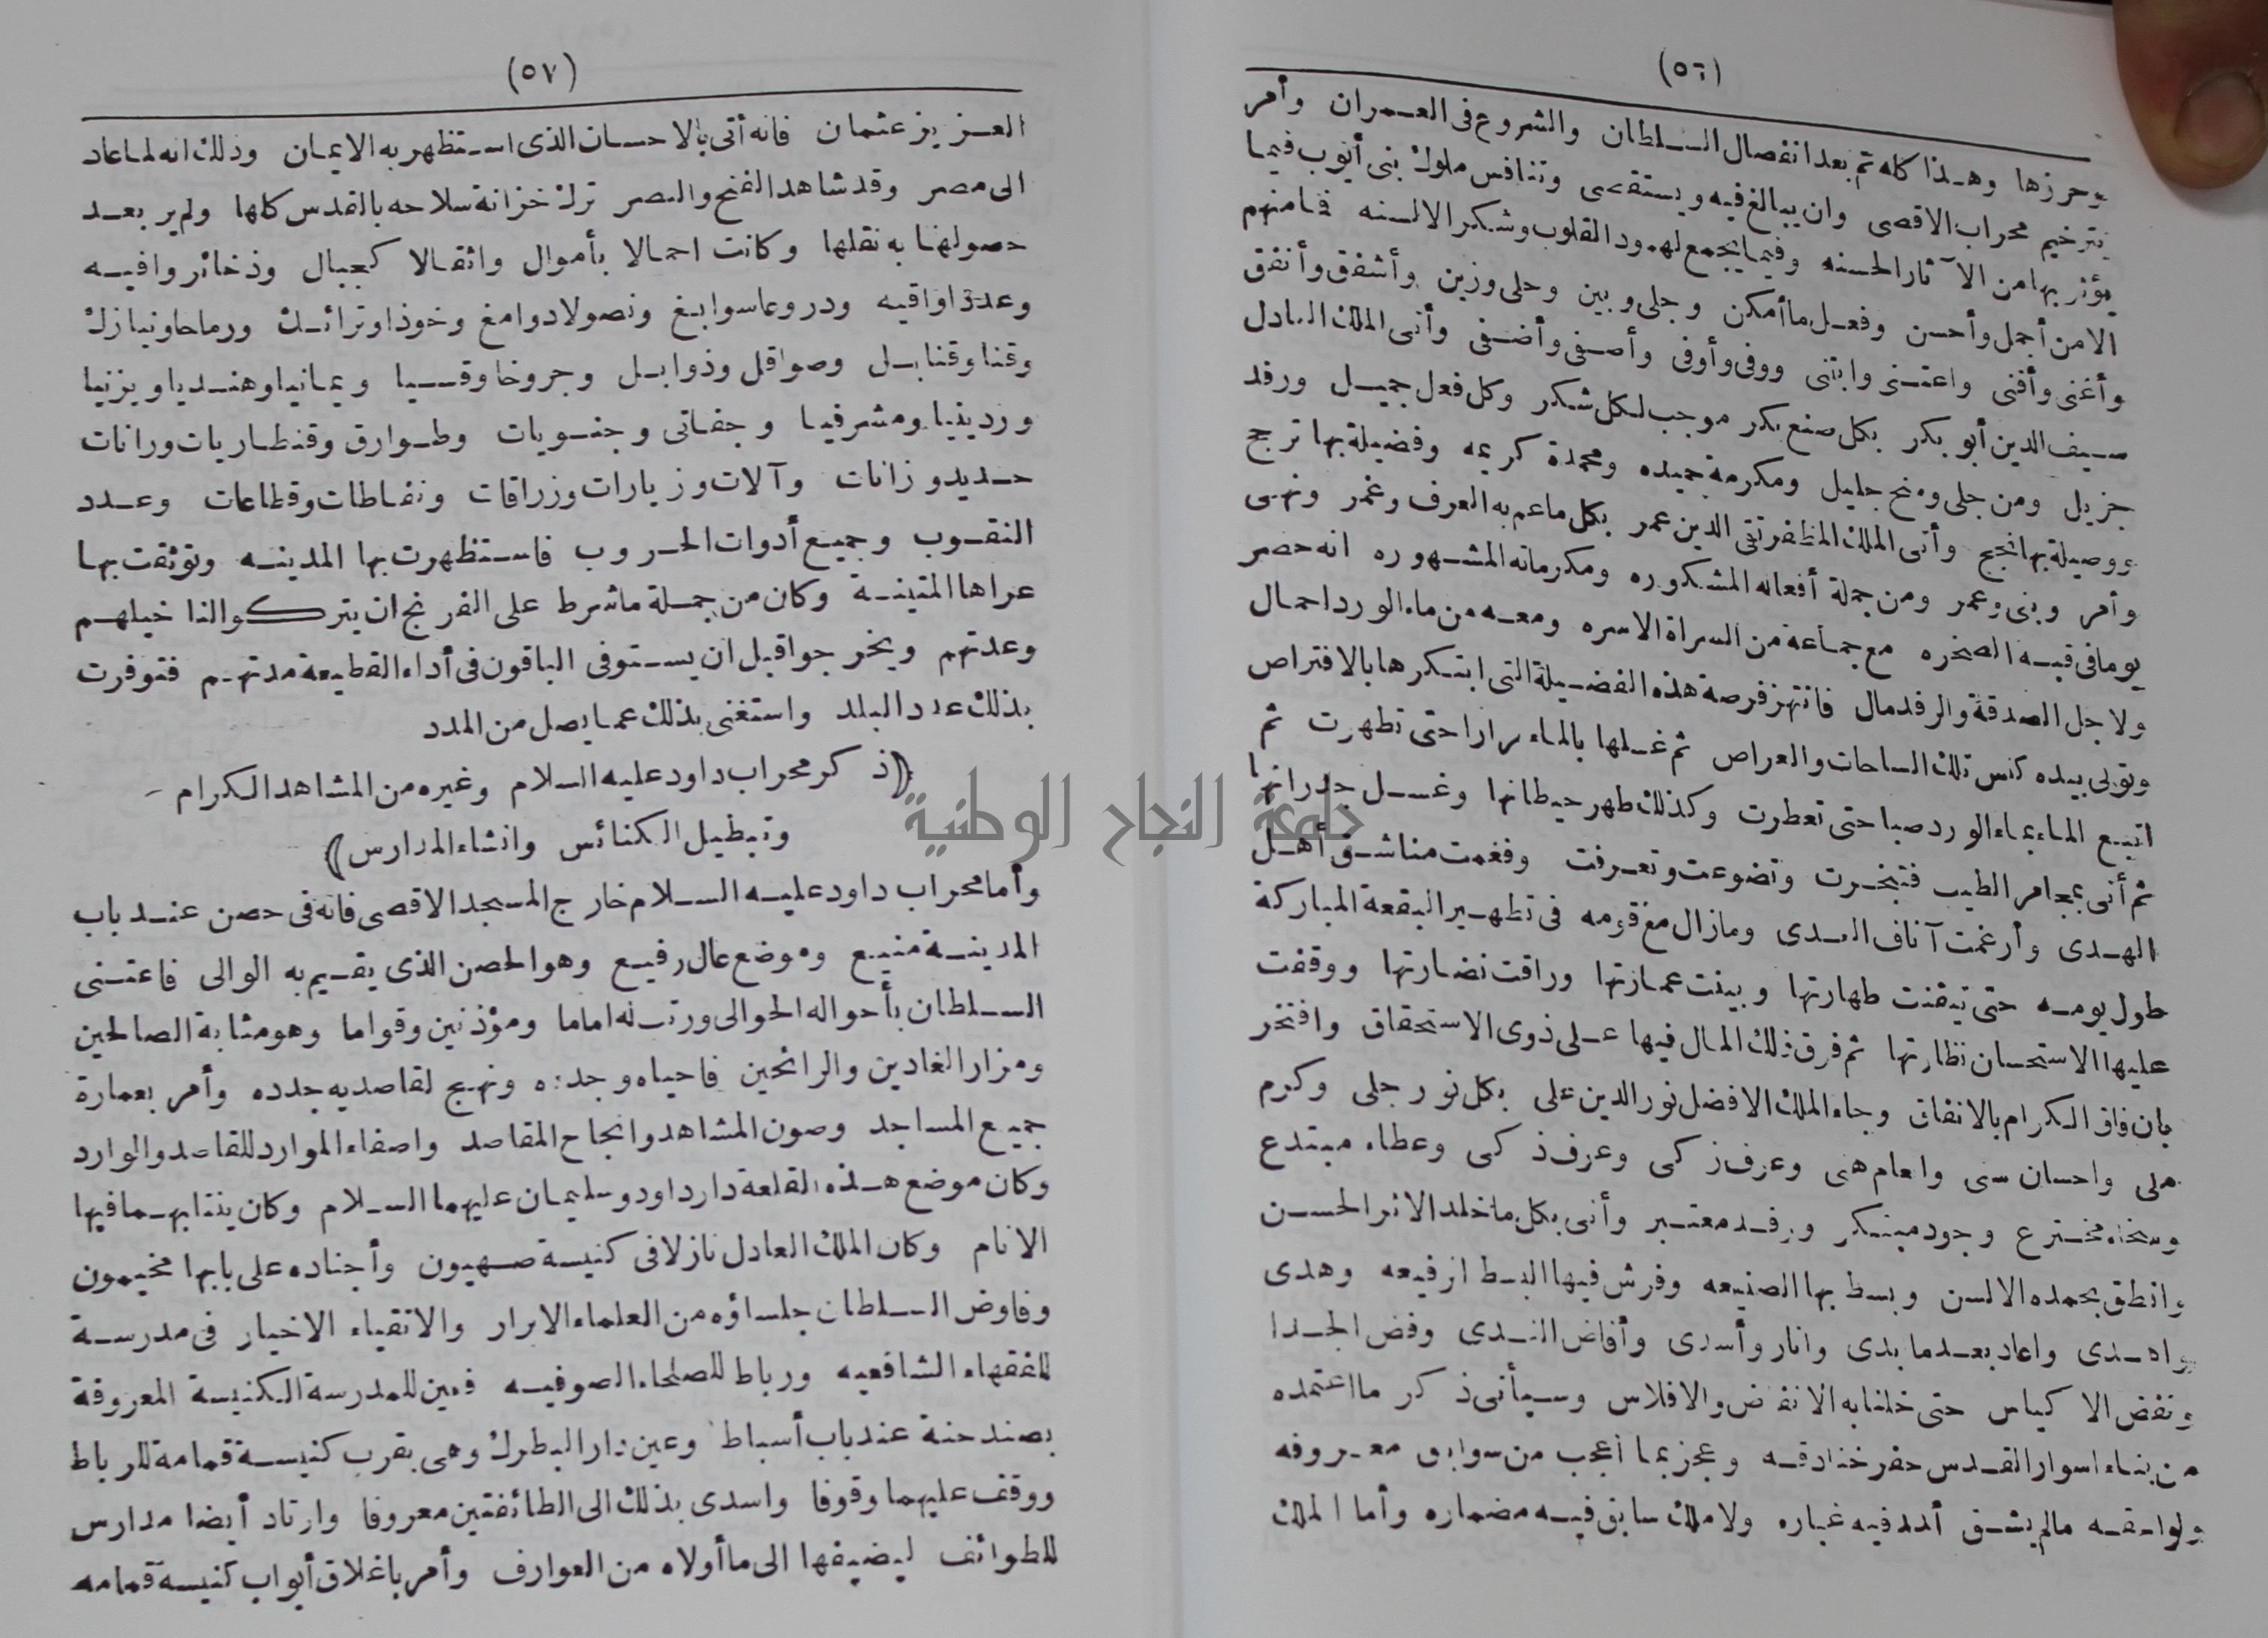 (٥٦)
وحرزها وهذا كله تم بعد انفصال السلطان والشروع فى العمران وأمر
بترخيم محراب الاقصى وان يبالغ فيه ويستقصى وتنافس ملوك بنى أيوب فيما
يؤثر بها من الآثار الحسنه وفيما يجمع لهم ود القلوب وشكر الالسنه فما منهم
الا من أجمل وأحسن وفعل ما أمكن وجلى وبين وحلى وزين وأشفق وأنفق
وأغنى وأقنى واعتنى وابتنى ووفى وأوفى وأصفى وأضفى وأتى الملك العادل
سيف الدين أبو بكر بكل صنع بكر موجب لكل شكر وكل فعل جميل ورفد
جزيل ومن جلى ومنح جليل ومكرمة حميده ومحمدة كريمه وفضيلة بها ترجح
ووصيلة بها نجح وأتى الملك المظفر تقى الدين عمر بكل ما عم به العرف وغمر ونهى
وأمر وبنى وعمر ومن جملة أفعاله المشكوره ومكرماته المشهوره انه حضر
يوما فى قبه الصخره مع جماعة من السراة الاسره ومعه من ماء الورد احمال
ولاجل الصدقة والرفد مال فانتهز فرصة هذه الفضيلة التى ابتكرها بالافتراص
وتولى بيده كنس تلك الساحات والعراص ثم غسلها بالماء مرارا حتى تطهرت ثم
اتبع الماء بماء الورد صبا حتى تعطرت وكذلك طهر حيطانها وغسل جدرانها
ثم أتى بمجامر الطيب فتبخرت وتضوعت وتعرفت وفغمت مناشق أهل
الهدى وأرغمت آناف العدى وما زال مع قومه فى تطهير البقعة المباركة
طول يومه حتى تيقنت طهارتها وبينت عمارتها وراقت نضارتها ووقفت
عليها الاستحسان نظارتها ثم فرق ذلك المال فيها على ذوى الاستحقاق وافتخر
بان فاق الكرام بالانفاق وجاء الملك الافضل نور الدين على بكل نور جلى وكرم
ملى واحسان سنى وانعام هنى وعرف زكى وعرف ذكى وعطاء مبتدع
وسخاء مخترع وجود مبتكر ورفد معتبر وأتى بكل ما خلد الاثر الحسن
وانطق بحمده الالسن وبسط بها الصنيعه وفرش فيها البسط الرفيعه وهدى
واهدى واعاد بعد ما بدى وانار وأسدى وأفاض الندى وفض الجدا
ونفض الاكياس حتى خلنا به الانفاض والافلاس وسيأتى ذكر ما اعتمده
من بناء اسوار القدس حفر خنادقه وعجز بما أعجب من سوابق معروفه
ولواحقه ما لم يشق أحد فيه غباره ولا ملك سابق فيه مضماره وأما الملك
(٥٧)
العزيز عثمان فانه أتى بالاحسان الذى استظهر به الايمان وذلك انه لما عاد
الى مصر وقد شاهد الفتح والنصر ترك خزانة سلاحه بالقدس كلها ولم ير بعد
حصولها به نقلها وكانت احمالا بأموال واثقالا كجبال وذخائر وافيه
وعددا واقيه ودروعا سوابغ ونصولا دوامغ وخوذا وترائك ورماحا ونيازك
وقنا وقنابل وصواقل وذوابل وجروخا وقسيا ويمانيا وهنديا ويزنيا
وردينيا ومشرفيا وجفاتى وجنويات وطوارق وقنطاريات ورانات
حديد وزانات وآلات وزيارات وزراقات ونفاطات وقطاعات وعدد
النقوب وجميع أدوات الحروب فاستظهرت بها المدينه وتوثقت بها
عراها المتينة وكان من جملة ما شرط على الفرنج ان يتركوا لنا خيلهم
وعدتهم ويخرجوا قبل ان يستوفى الباقون فى أداء القطيعة مدتهم فتوفرت
بذلك عدد البلد واستغنى بذلك عما يصل من المدد
(ذكر محراب داود عليه السلام وغيره من المشاهد الكرام
وتبطيل الكنائس وانشاء المدارس)
وأما محراب داود عليه السلام خارج المسجد الاقصى فانه فى حصن عند باب
المدينة منيع وموضع عال رفيع وهو الحصن الذى يقيم به الوالى فاعتنى
السلطان بأحواله الحوالى ورتب له اماما ومؤذنين وقواما وهو مثابة الصالحين
ومزار الغادين والرائحين فاحياه وجدده ونهج لقاصديه جدده وأمر بعمارة
جميع المساجد وصون المشاهد وانجاح المقاصد واصفاء الموارد للقاصد والوارد
وكان موضع هذه القلعة دار داود وسليمان عليهما السلام وكان ينتابهما فيها
الانام وكان الملك العادل نازلا فى كنيسة صهيون وأجناده على بابها مخيمون
وفاوض السلطان جلساؤه من العلماء الابرار والاتقياء الاخيار فى مدرسة
للفقهاء الشافعيه ورباط للصلحاء الصوفيه فعين للمدرسة الكنيسة المعروفة
بصند حنة عند باب أسباط وعين دار البطرك وهى بقرب كنيسة قمامة للرباط
ووقف عليهما وقوفا واسدى بذلك الى الطائفتين معروفا وارتاد أيضا مدارس
للطوائف ليضيفها الى ما أولاه من العوارف وأمر باغلاق أبواب كنيسة قمامه
جامعة النجاح الوطنية